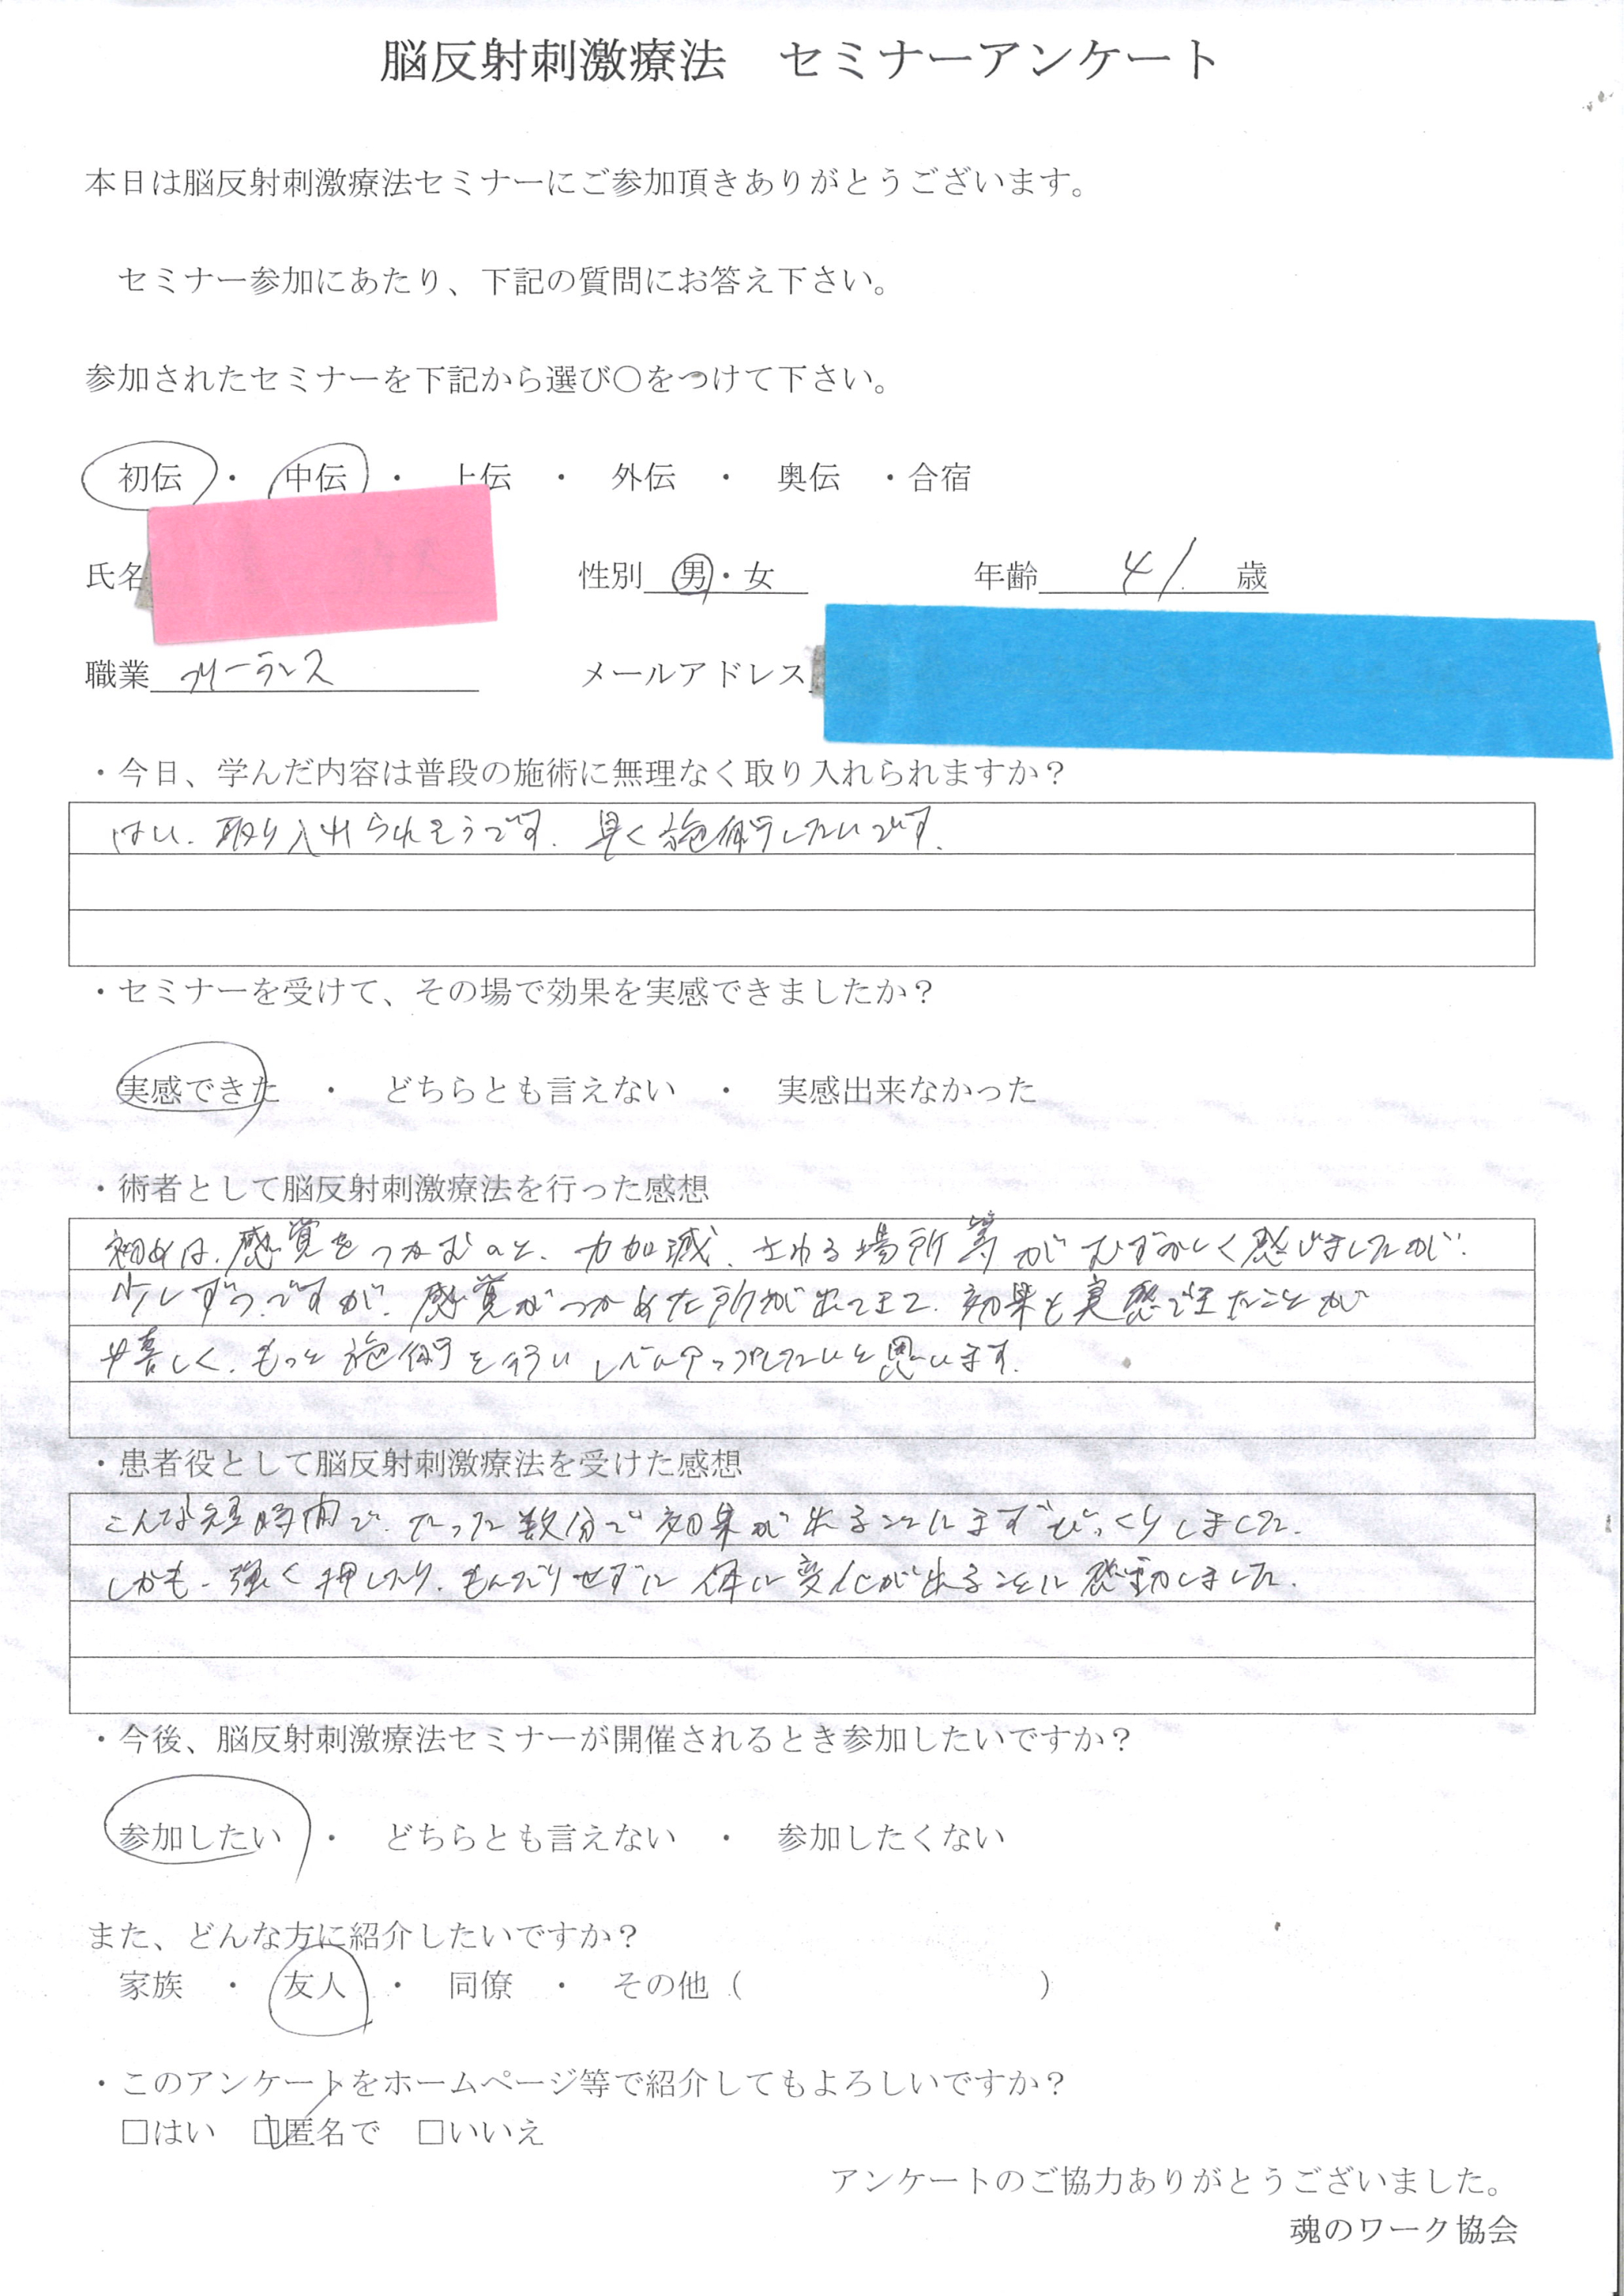 脳反射刺激療法　セミナーアンケート
本日は脳反射刺激療法セミナーにご参加頂きありがとうございます。
セミナー参加にあたり、下記の質問にお答え下さい。
参加されたセミナーを下記から選び〇をつけて下さい。
初伝 ・ 中伝 ・ 上伝 ・ 外伝 ・ 奥伝 ・合宿
氏名 性別 男・女 年齢 41 歳
職業 フリーランス メールアドレス
・今日、学んだ内容は普段の施術に無理なく取り入れられますか？
はい、取り入れられそうです。早く施術したいです。
・セミナーを受けて、その場で効果を実感できましたか？
実感できた ・ どちらとも言えない ・ 実感出来なかった
・術者として脳反射刺激療法を行った感想
初めは、感覚をつかむのと、力加減、さわる場所等がむずかしく感じましたが、
少しずつですが、感覚がつかめた所が出てきて、効果も実感できたことが
嬉しく、もっと施術を行いレベルアップしたいと思います。
・患者役として脳反射刺激療法を受けた感想
こんな短時間で、たった数分で効果が出ることにまずびっくりしました。
しかも、強く押したり、もんだりせずに体に変化が出ることに感動しました。
・今後、脳反射刺激療法セミナーが開催されるとき参加したいですか？
参加したい ・ どちらとも言えない ・ 参加したくない
また、どんな方に紹介したいですか？
家族 ・ 友人 ・ 同僚 ・ その他（　　　　　　　　　）
・このアンケートをホームページ等で紹介してもよろしいですか？
□はい □匿名で □いいえ
アンケートのご協力ありがとうございました。
魂のワーク協会